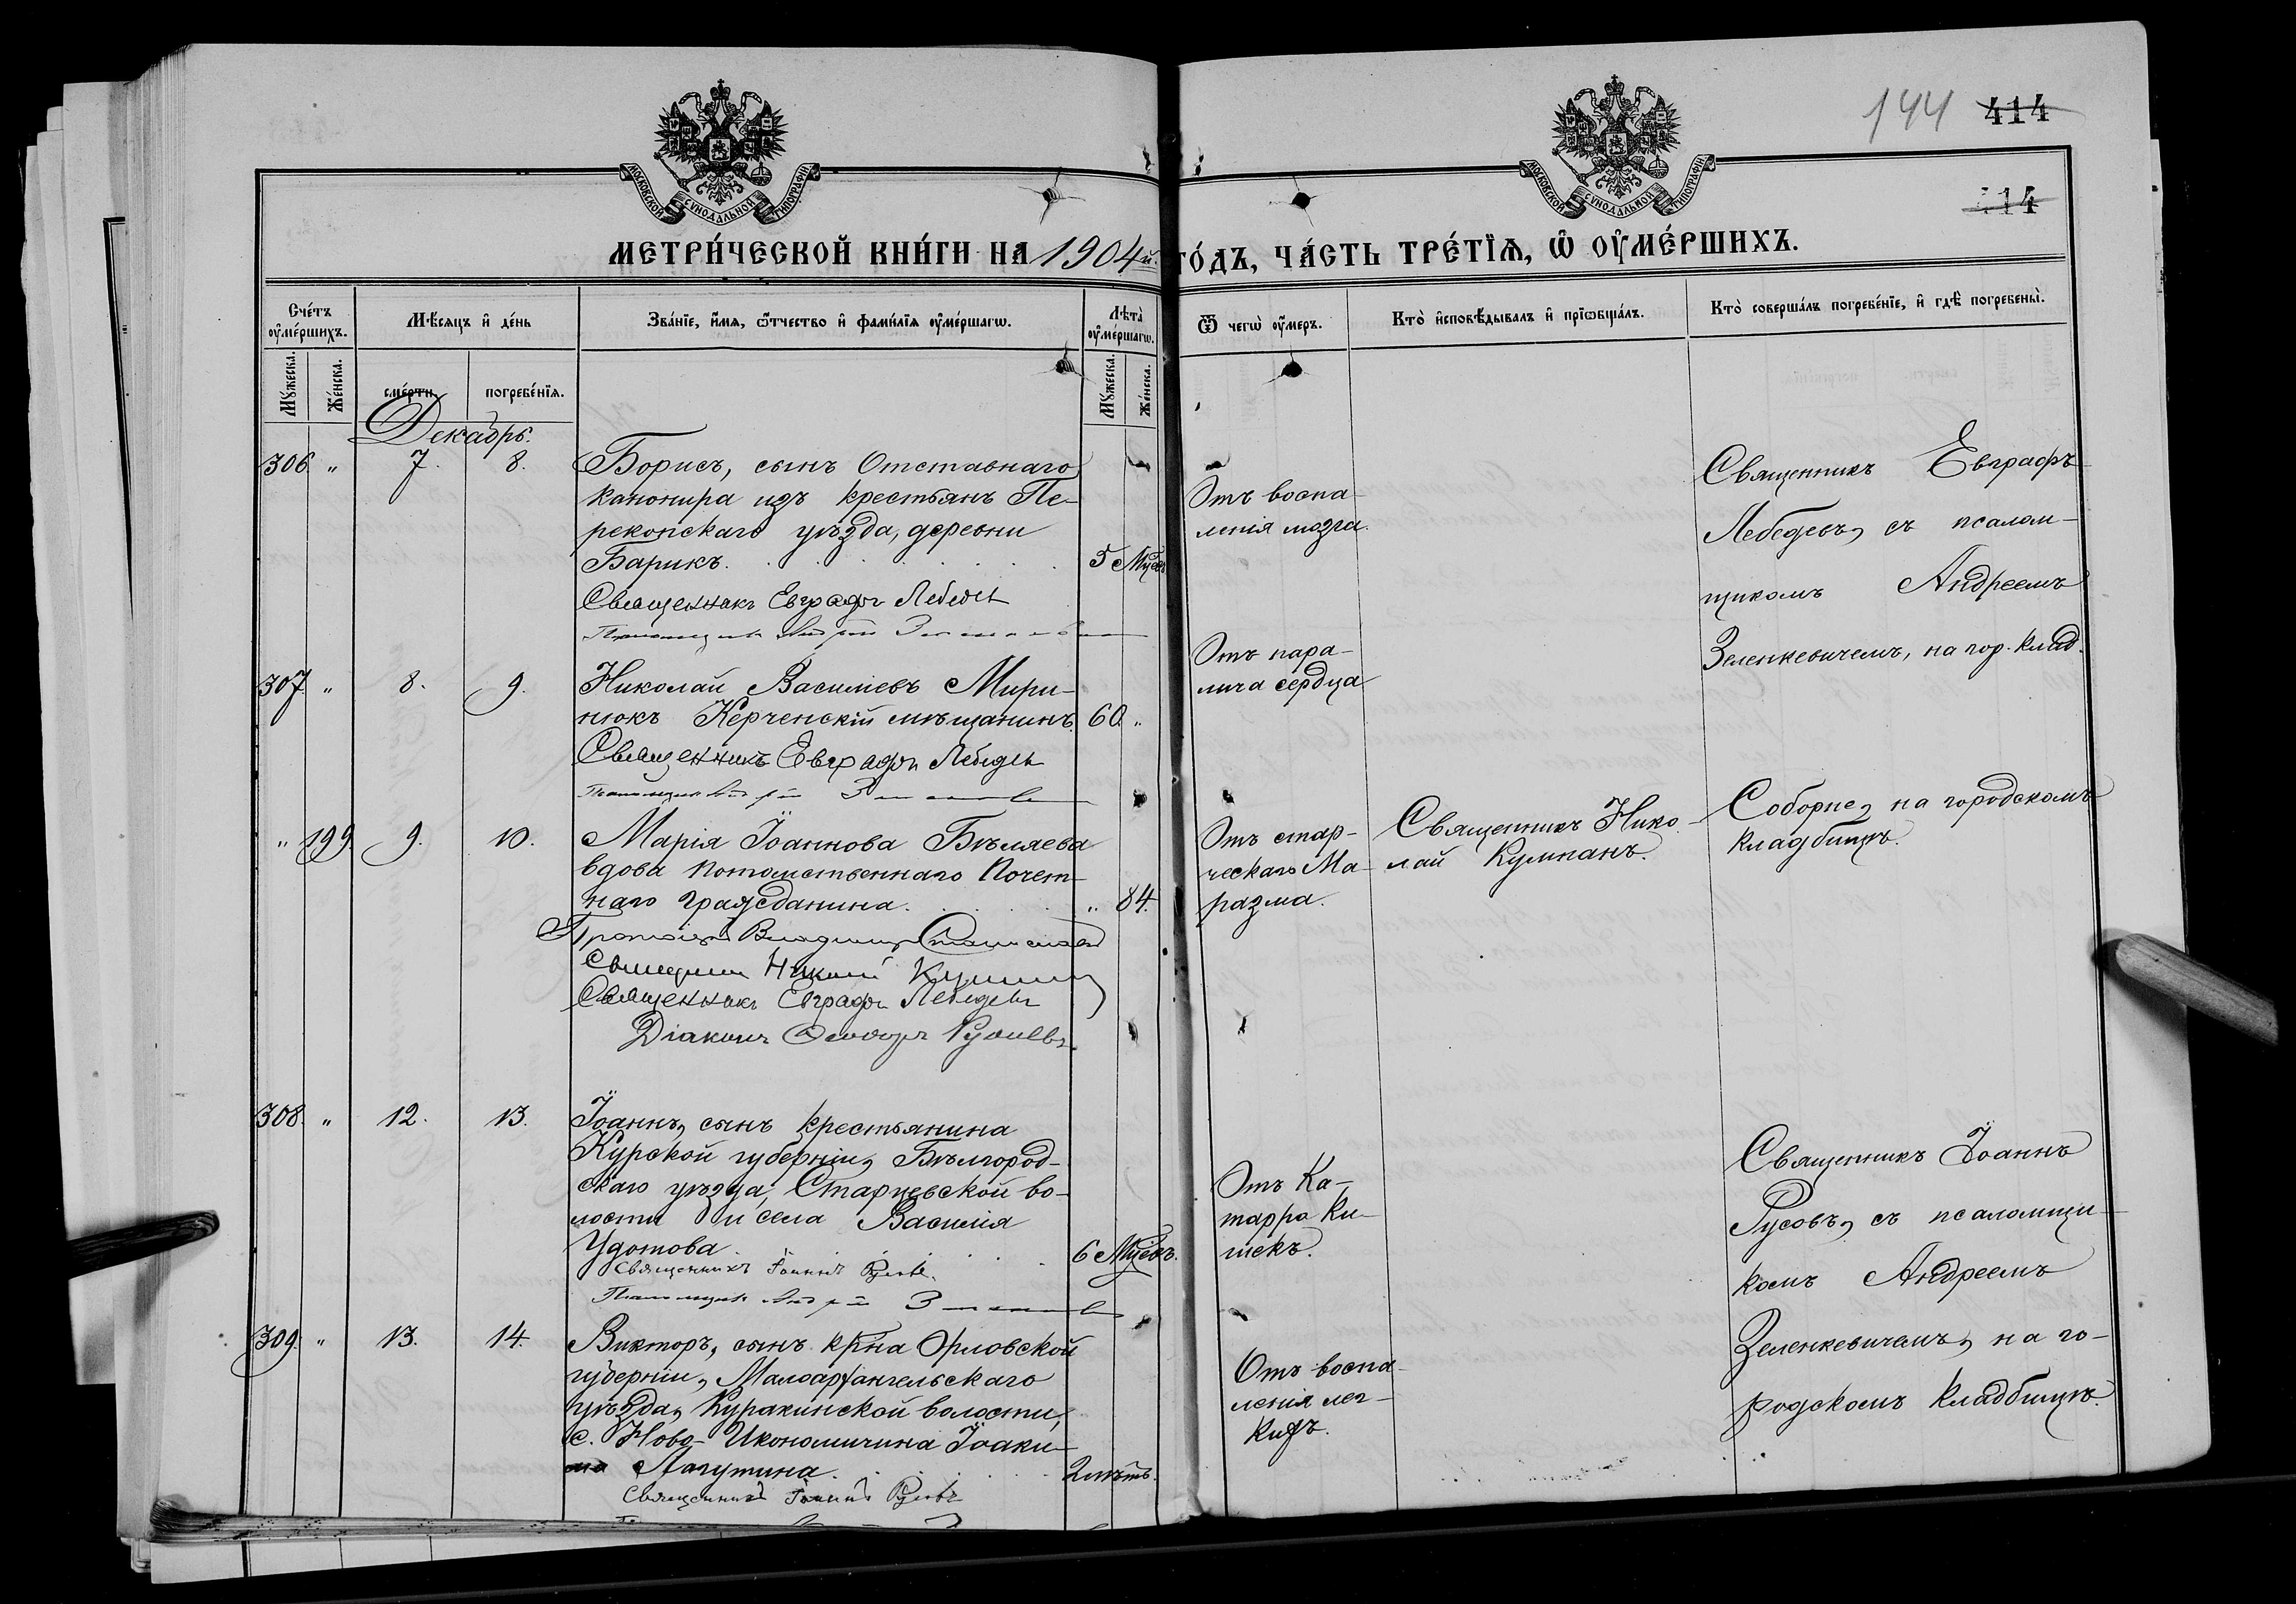 144 414
МОСКОВСКОЙ СѴНОДАЛЬНОЙ ТИПОГРАФІИ
МОСКОВСКОЙ СѴНОДАЛЬНОЙ ТИПОГРАФІИ
414
МЕТРИ́ЧЕСКОЙ КНИ́ГИ НА 1904й. ГО́ДЪ, ЧА́СТЬ ТРЕ́ТІѦ, Ѡ҆ ОУ҆МЕ́РШИХЪ.
Сче́тъ оу҆ме́ршихъ.
Мѣ́сѧцъ и҆ де́нь
Зва́нїе, и҆́мѧ, ѻ҆́тчество и҆ фами́лїѧ оу҆ме́ршагѡ.
Лѣта̀ оу҆ме́ршагѡ.
Ѿ чегѡ̀ оу҆́меръ.
Кто̀ и҆сповѣ́дывалъ и҆ прїѡбща́лъ.
Кто̀ соверша́лъ погребе́нїе, и҆ гдѣ̀ погребены̀.
Мꙋ́жеска.
Же́нска.
сме́рти.
погребе́нїѧ.
Мꙋ́жеска.
Же́нска.
Декабрь.
306 " 7. 8. Борисъ, сынъ Отставнаго
канонира изъ крестьянъ Пе-
рекопскаго уѣзда, деревни
Барикъ. 5 Мцев
Священникъ Евграфъ Лебедевъ
Отъ воспа-
ленія мозга.
Священникъ Евграфъ
Лебедевъ, съ псалом-
щикомъ Андреемъ
Зеленкевичемъ, на гор. клад.
307 " 8. 9. Николай Васильевъ Мири-
нюкъ Керченскій мѣщанинъ. 60 "
Священникъ Евграфъ Лебедевъ
Отъ пара-
лича сердца
" 199 9. 10. Марія Іоаннова Бѣляева
вдова потомственнаго Почет-
наго гражданина. " 84.
Протоіерей Владимиръ Станиславскій
Священникъ Николай Кумпанъ
Священникъ Евграфъ Лебедевъ
Діаконъ Ѳеодоръ
Отъ стар-
ческаго Ма-
разма.
Священникъ Нико-
лай Кумпанъ.
Соборне, на городскомъ
кладбищѣ.
308. " 12. 13. Іоаннъ, сынъ крестьянина
Курской губерніи, Бѣлгород-
скаго уѣзда, Старцевской во-
лости и села Василія
Удотова 6 Мцевъ.
Священникъ Іоаннъ Русовъ.
Псаломщикъ Андрей
Отъ Ка-
тарра Ки-
шекъ.
Священникъ Іоаннъ
Русовъ, съ псаломщи-
комъ Андреемъ
Зеленкевичемъ, на го-
родскомъ кладбищѣ.
309. " 13. 14. Викторъ, сынъ кр̃на Орловской
губерніи, Малоархангельскаго
уѣзда, Куракинской волости,
с. Ново-Икономичина Іоаки-
ма Лагутина. 2 лѣтъ.
Священникъ Іоаннъ Русовъ
Отъ воспа-
ленія лег-
кихъ.